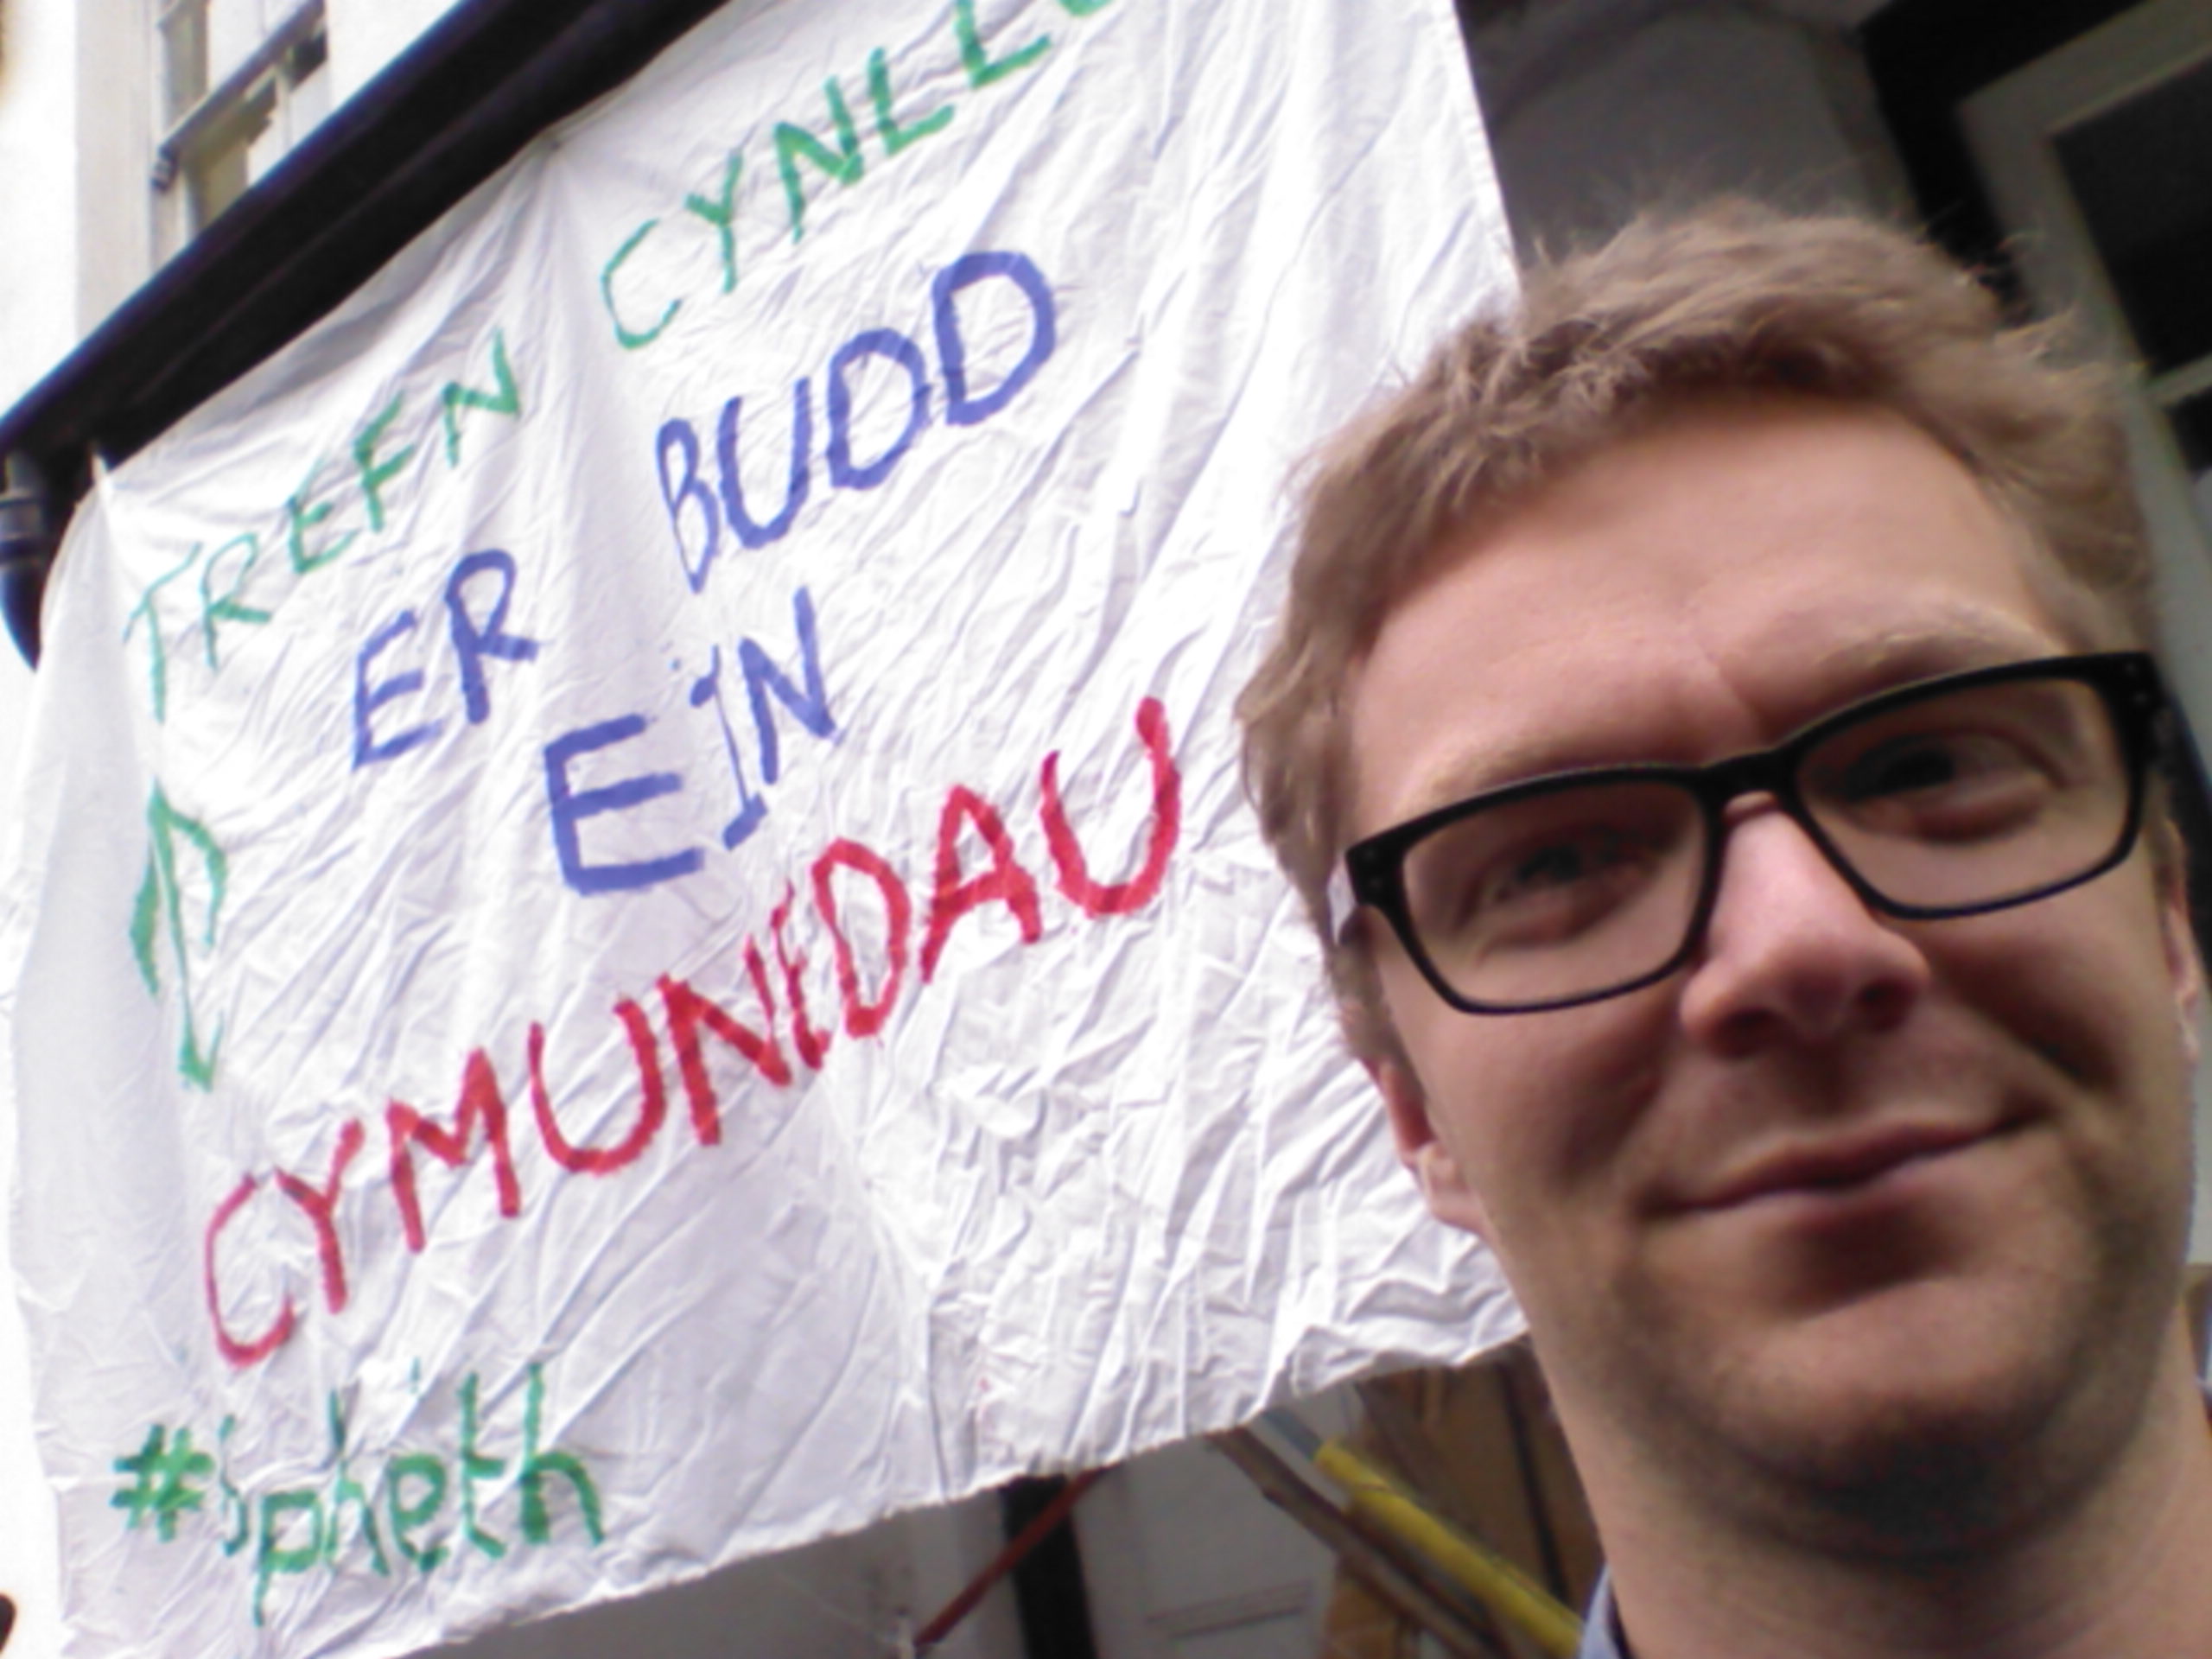 TREFN CYNLL
ER BUDD
EIN
CYMUNEDAU
#